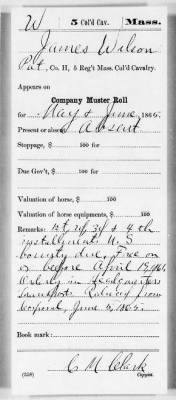 W 5 Col'd Cav. Mass.
James Wilson
Pvt., Co. H, 5 Reg't Mass. Col'd Cavalry.
Appears on
Company Muster Roll
for May & June, 1865.
Present or absent Absent
Stoppage, $ 100 for
Due Gov't, $ 100 for
Valuation of horse, $ 100
Valuation of horse equipments, $ 100
Remarks: 1st, 2d, 3d & 4th
installments U.S
bounty due. Free on
or before April 19, 1861.
Orderly in Headquarters
transports. Reduced from
Corporal, June 5, 1865.
Book mark:
C M Clark
(358) Copyist.